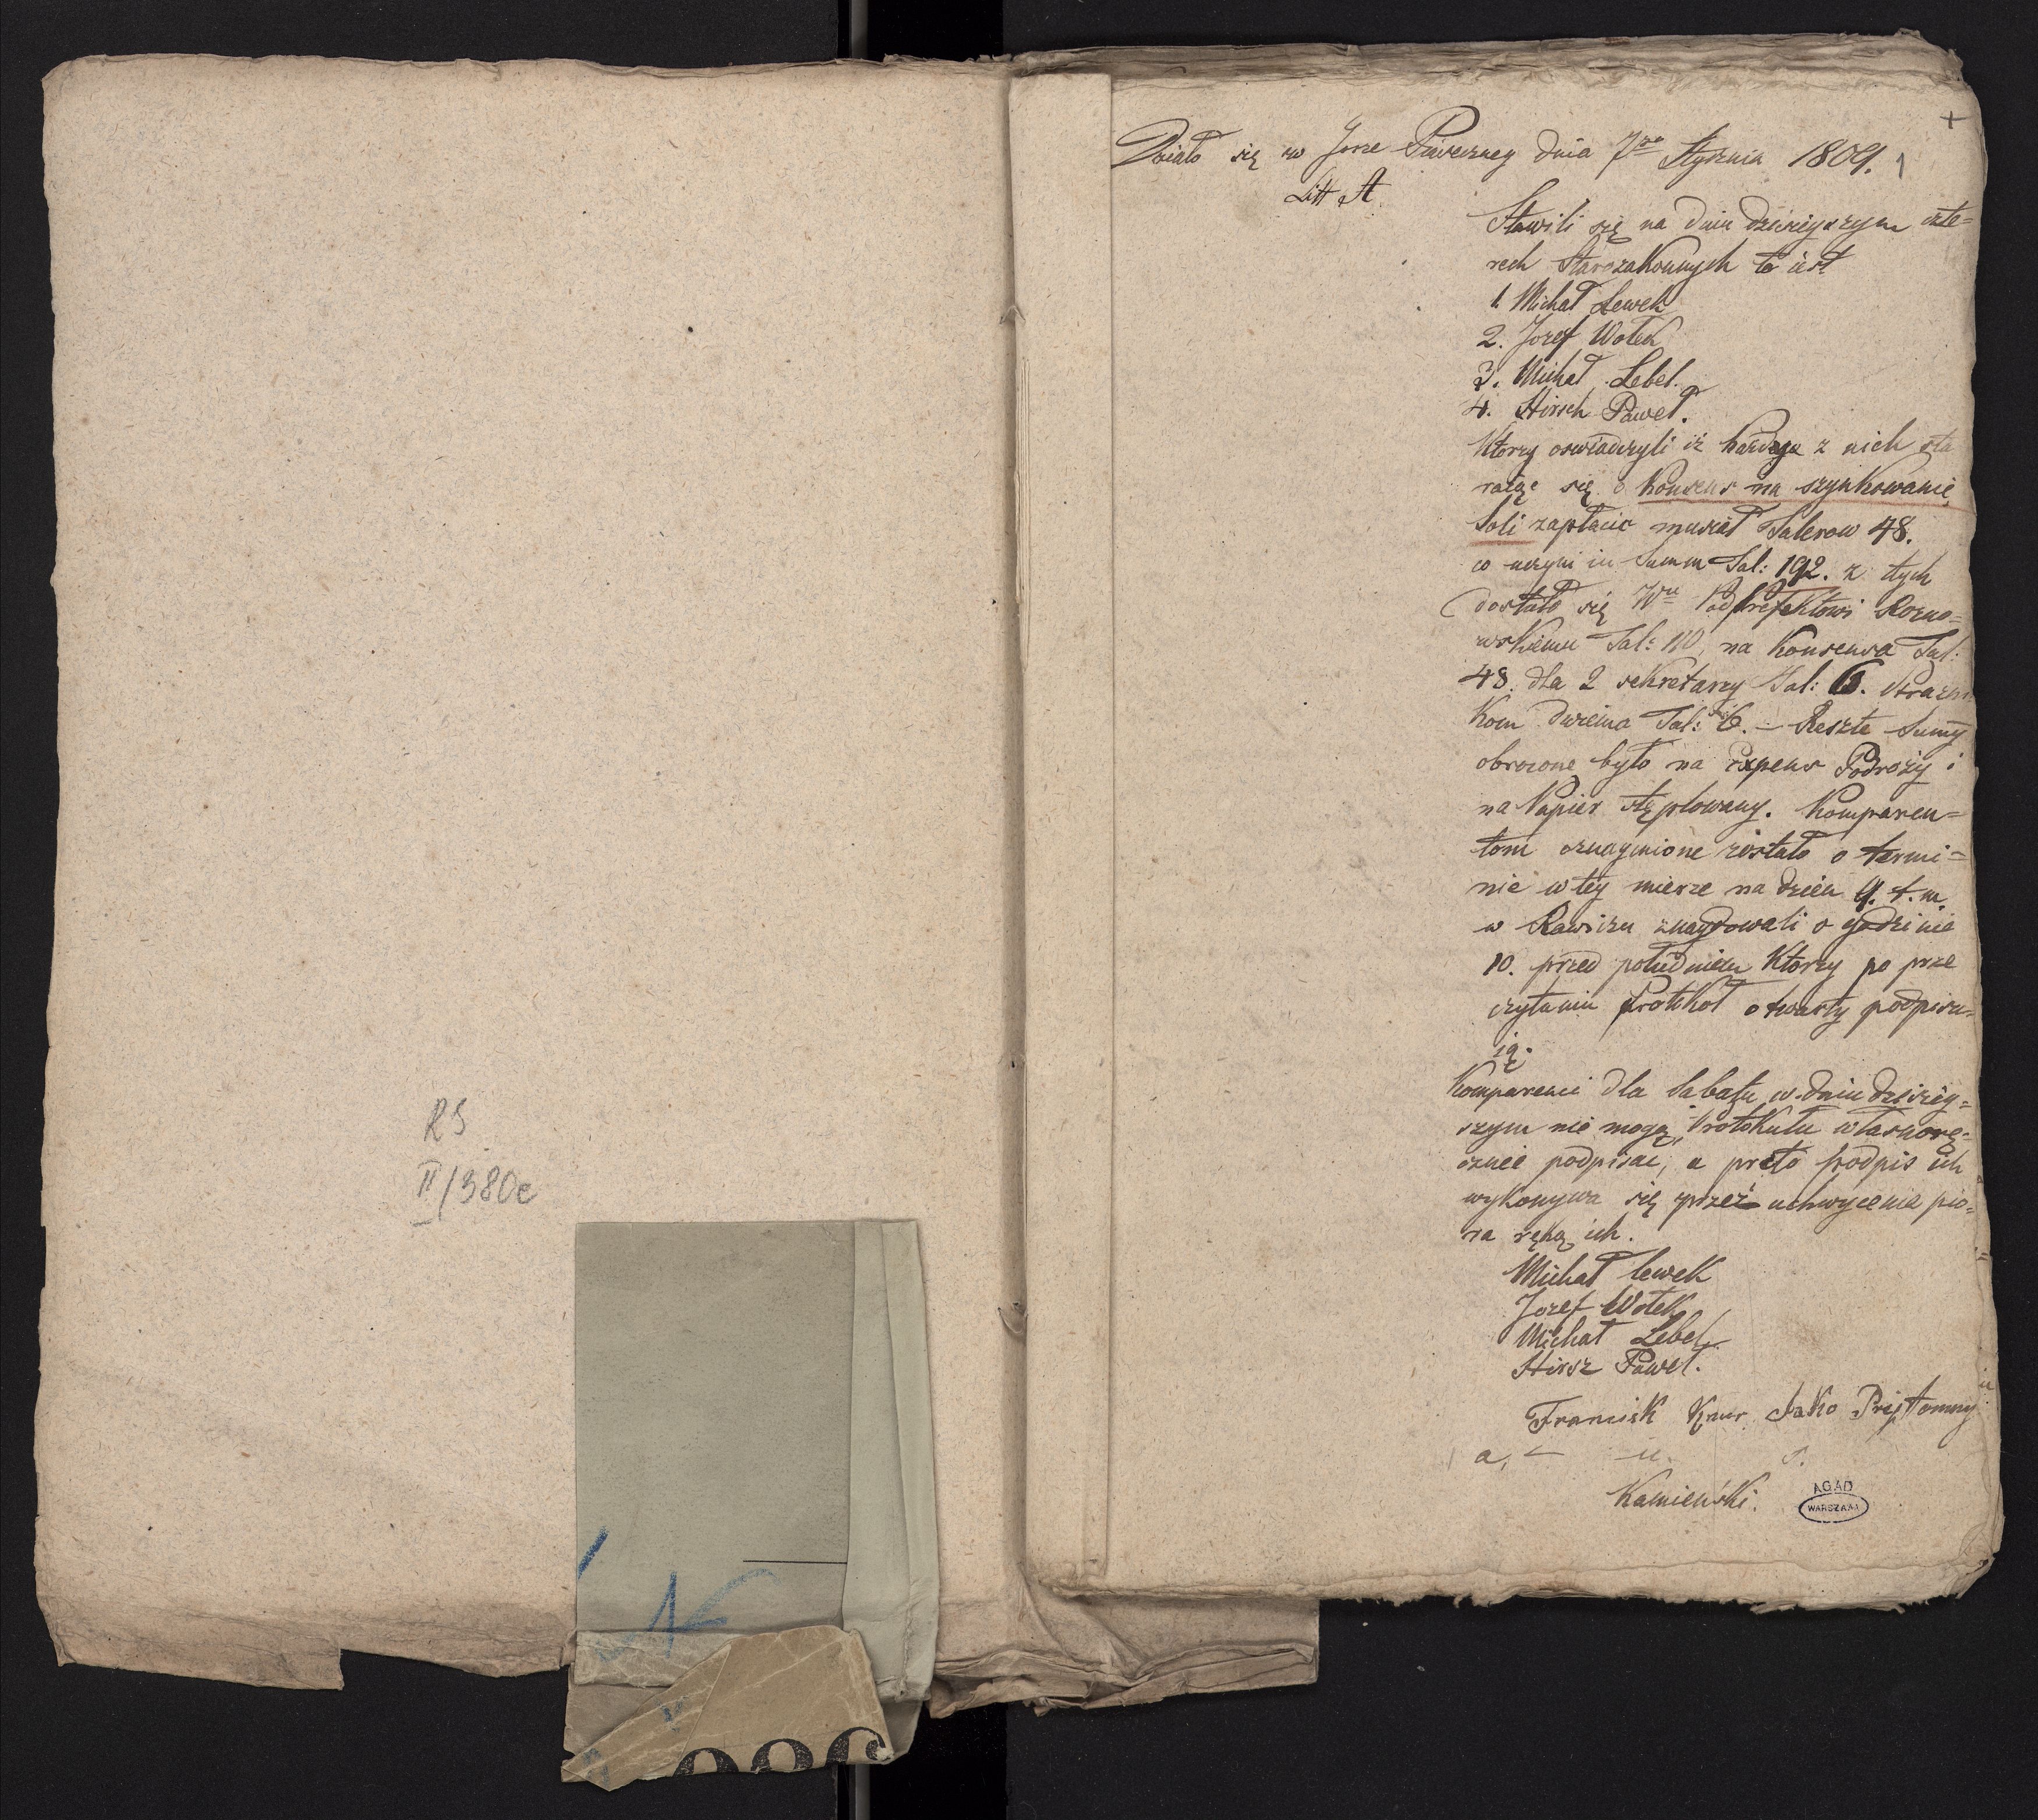 RS
II/380c
986
+
Działo się w Jorze Piweczney dnia 7go Stycznia 1809.
1
Litt A.
Stawili się na dniu dzisieyszym czte=
rech Starozakonnych to iest
1. Michał Lewek
2. Jozef Wołek
3. Michał Lebel.
4. Hirsch Paweł.
Ktorzy oswiadczyli iż każdy z nich sta
raiąc się o Konsens na szynkowanie
Soli zapłacic musiał Talerow 48.
co uczyni in Summ Tal: 192. z tych
dostało się Wu Podprefektowi Rozno=
wskiemu Tal: 110, na Konsensa Tal:
48. dla 2 sekretarzy Tal: 6. Strazni
kom dwiema Tal: 6. – Reszte Sumy
obrocone było na Expens Podroży i
na Papier stęplowany. Komparen=
tom oznaymione zostało o termi=
nie w tey mierze na dzien 9. t. m.
w Rawiczu znaydowali o godzinie
10. przed południem Ktorzy po prze
czytaniu Protokoł otwarty podpisu=
ią.
Komparenci dla Sabatu w dniu dzisiey=
szym nie mogą Protokułu własnorę=
cznie podpisac, a przto podpis ich
wykonywa się przez uchwycenie pio=
ra ręką ich.
Michał Lewek
Jozef Wołek
Michał Lebel.
Hirsz Paweł.
Francisk Knur Jako Prizłomny
a, – u. s.
Kamieński.
AGAD
WARSZAWA